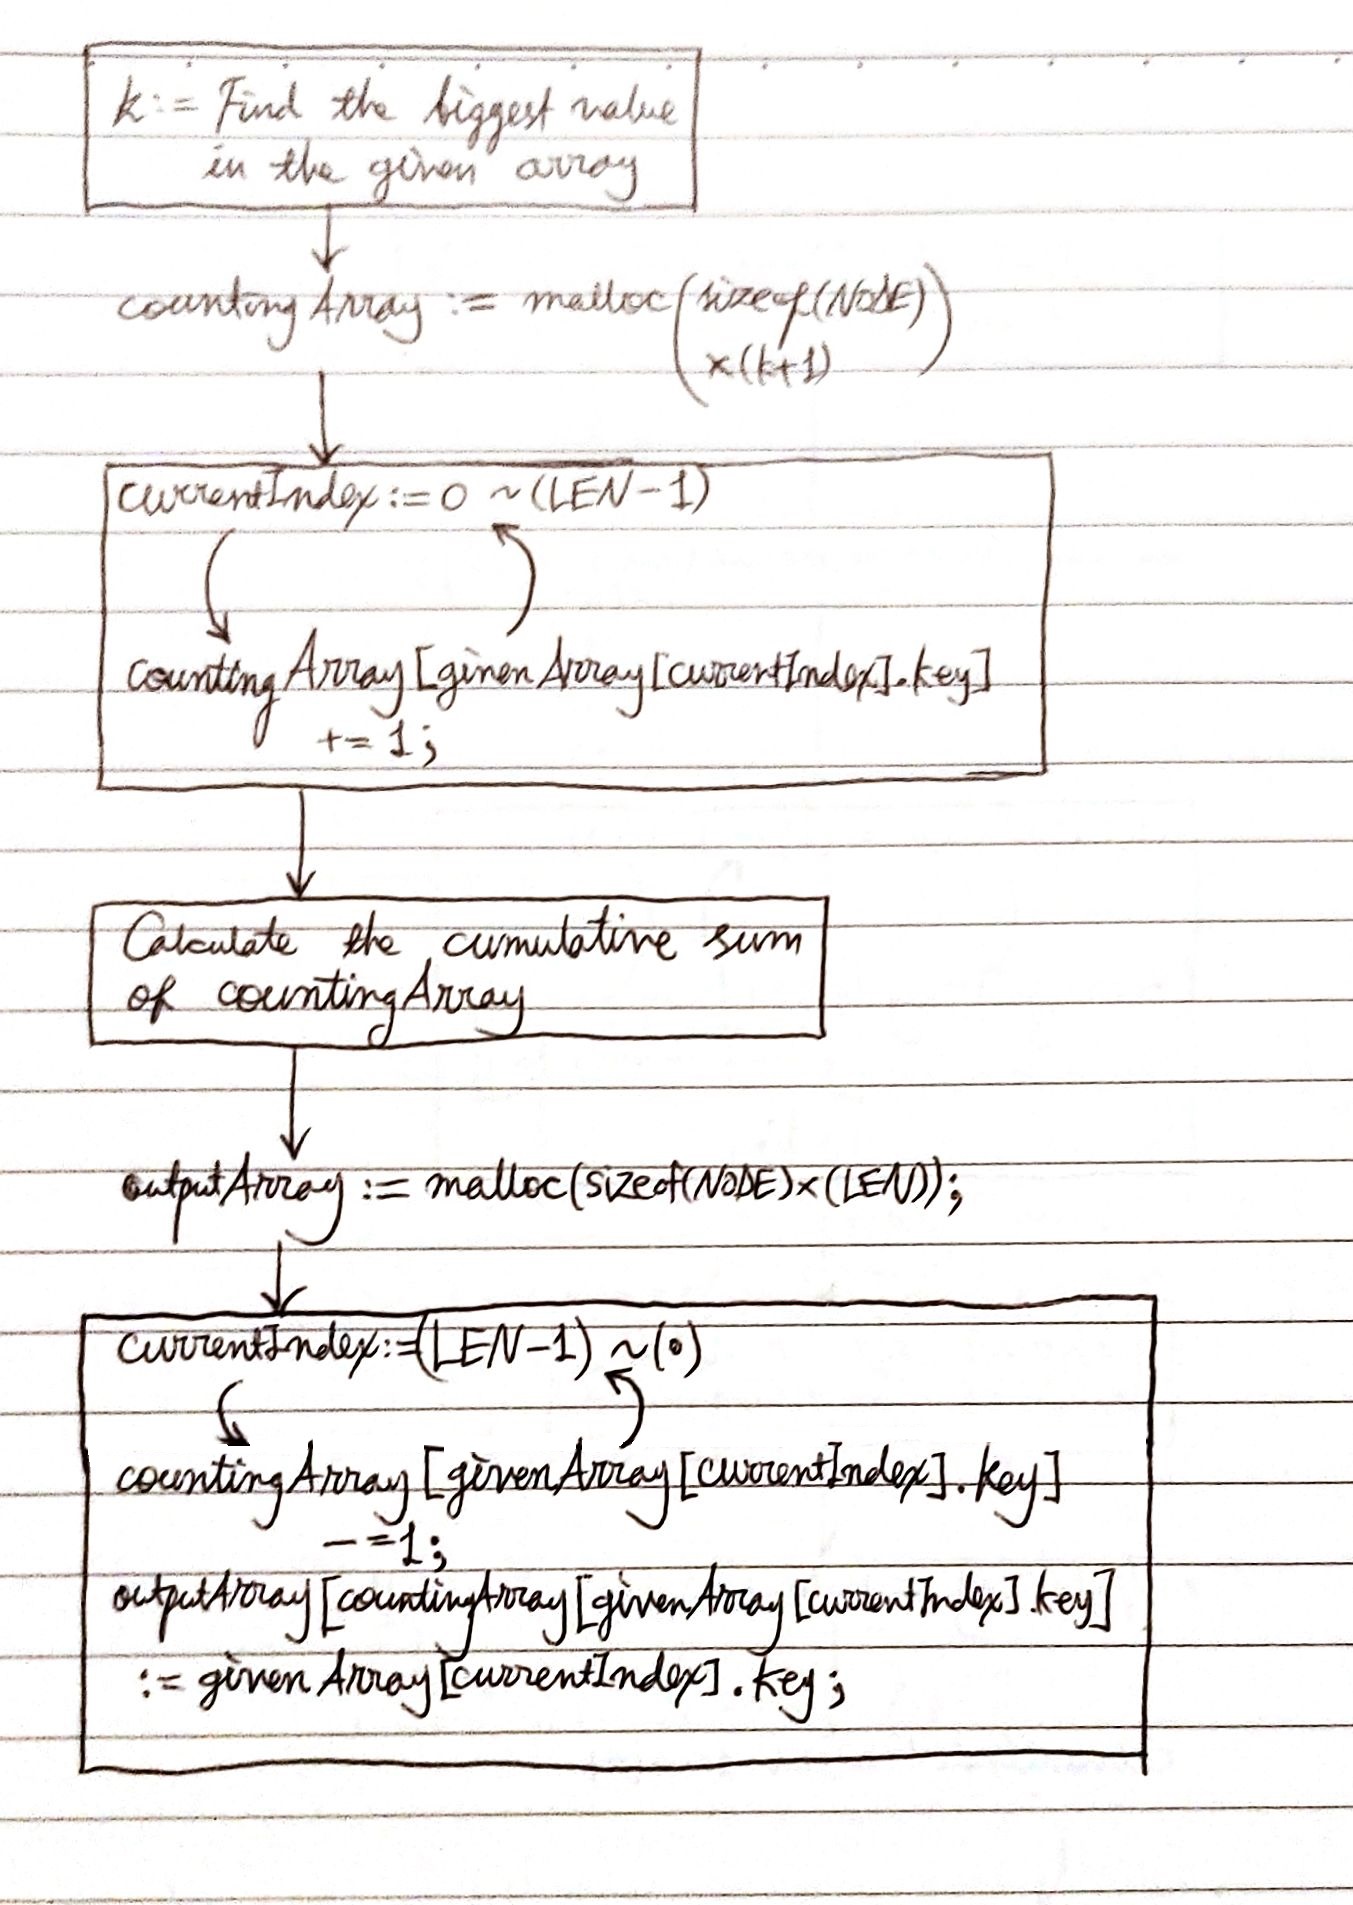 k := Find the biggest value
in the given array
countingArray := malloc(sizeof(NODE)
x(k+1))
currentIndex := 0 ~ (LEN-1)
countingArray[givenArray[currentIndex].key]
+= 1;
Calculate the cumulative sum
of countingArray
outputArray := malloc(sizeof(NODE)x(LEN));
currentIndex := (LEN-1) ~ (0)
countingArray[givenArray[currentIndex].key]
-=1;
outputArray[countingArray[givenArray[currentIndex].key]
:= givenArray[currentIndex].key;